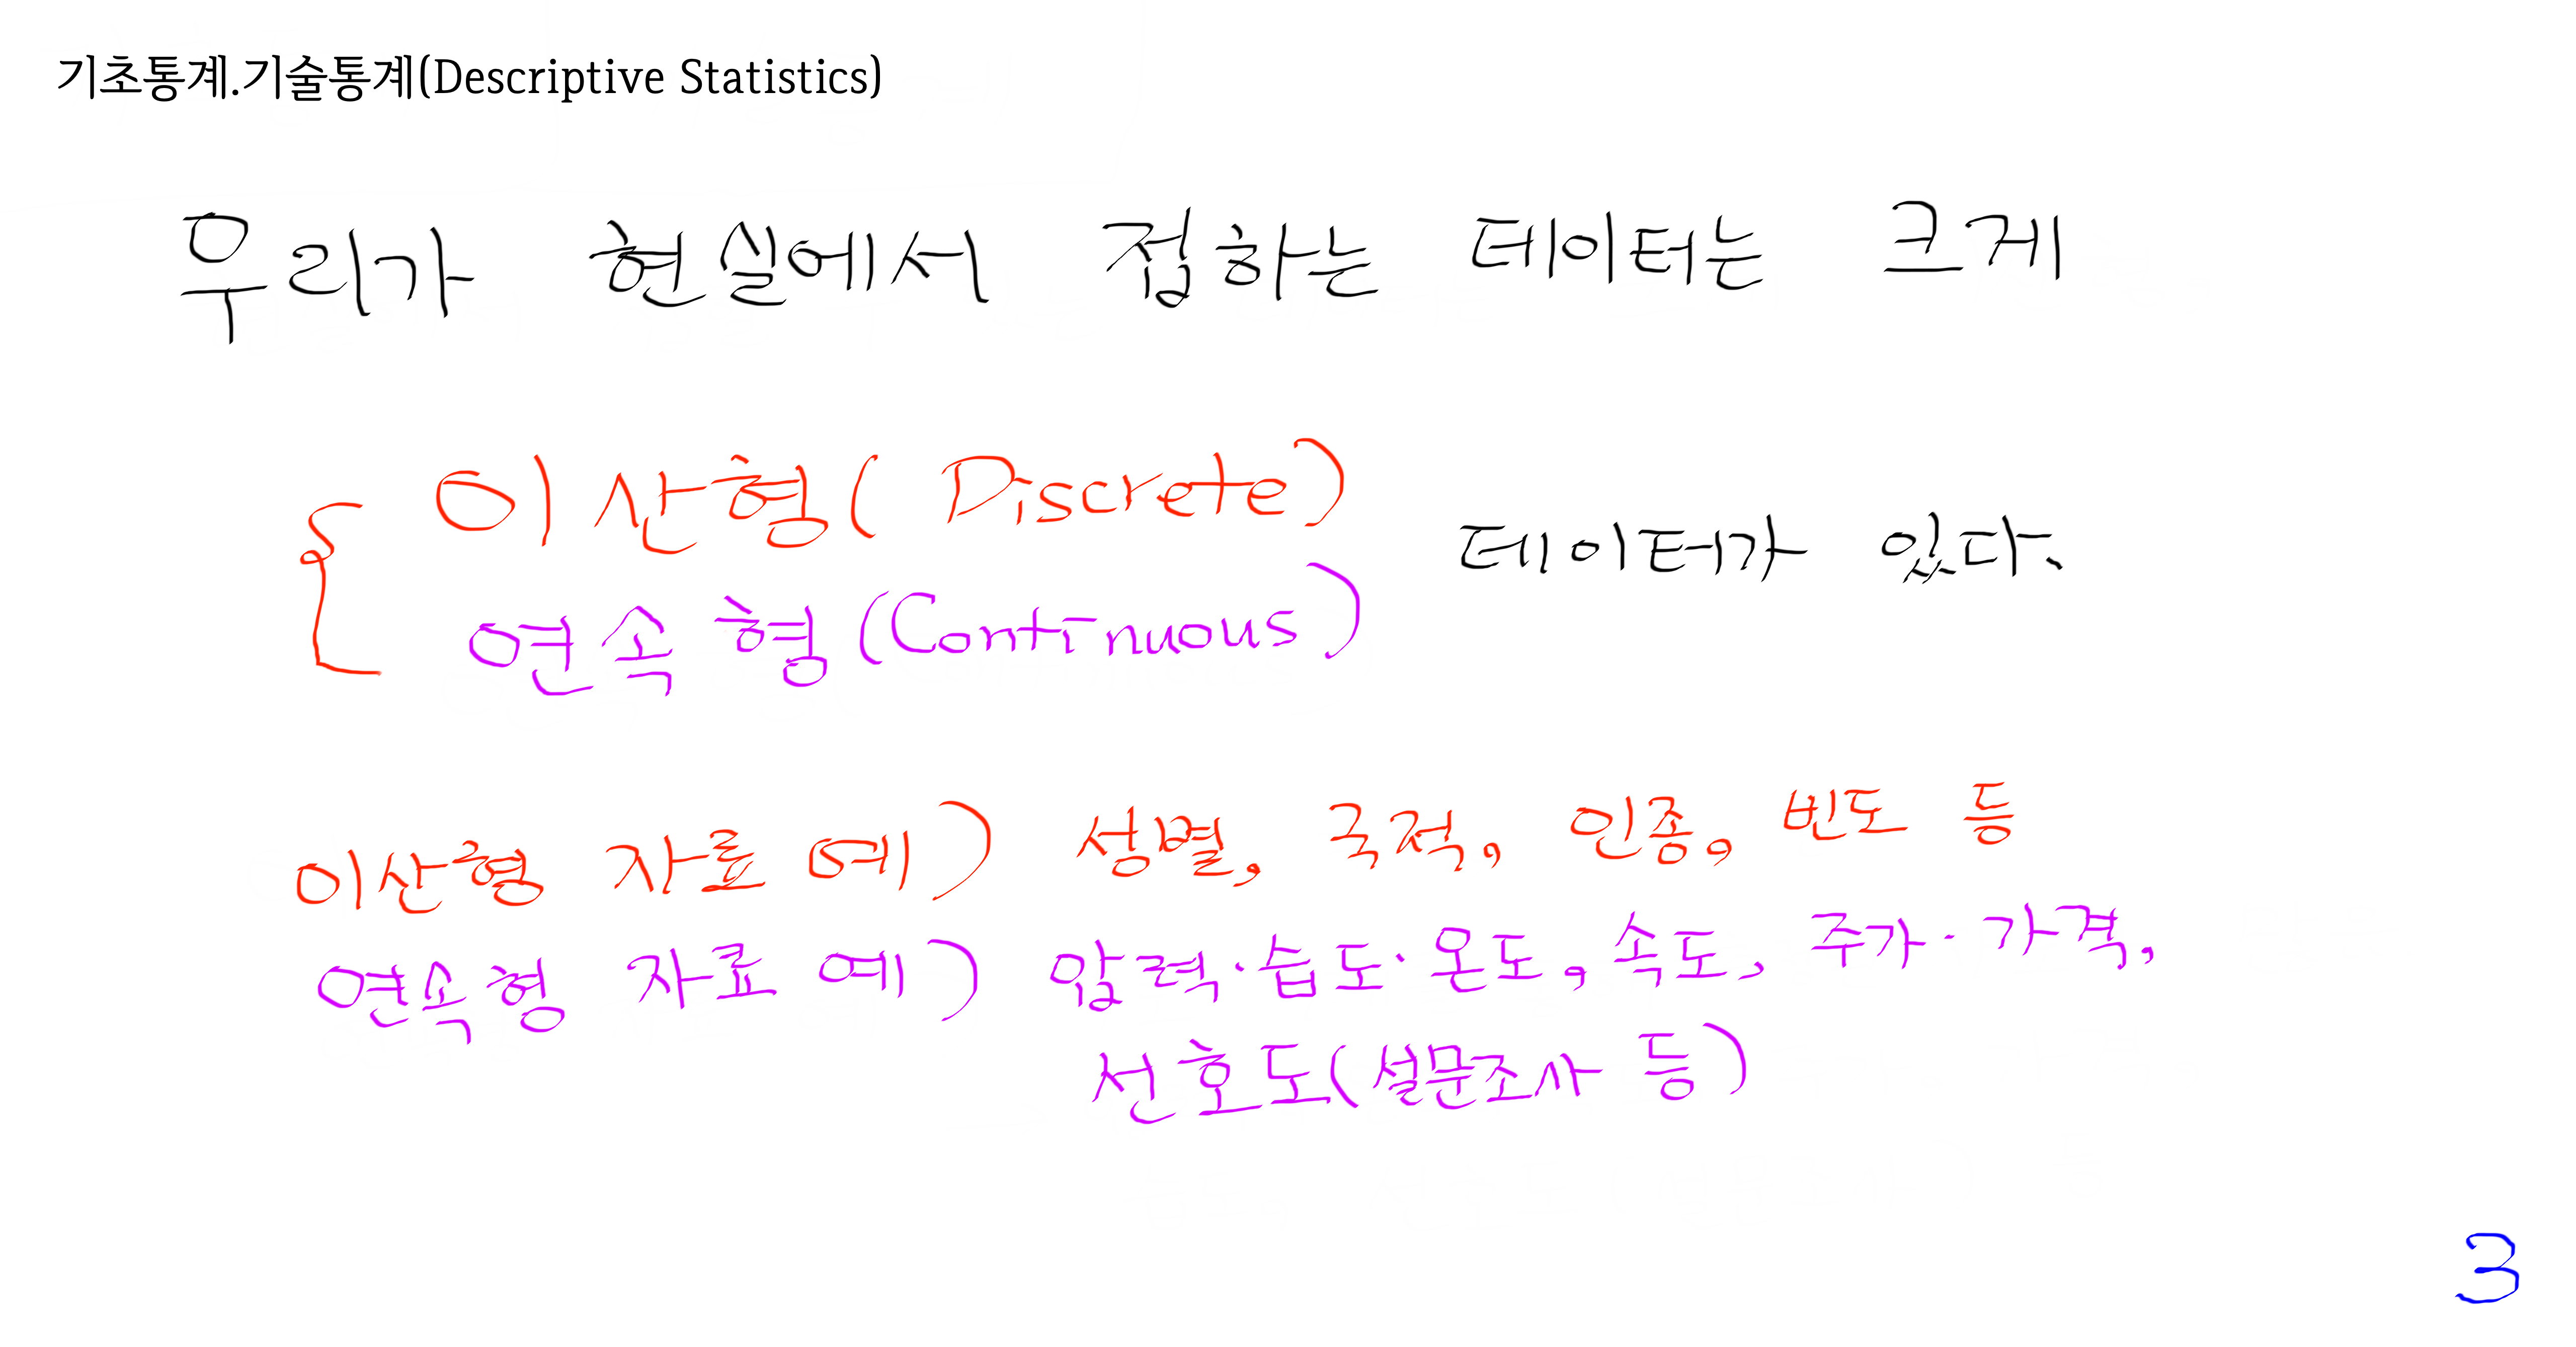 기초통계.기술통계(Descriptive Statistics)
우리가 현실에서 접하는 데이터는 크게
이산형( Discrete)
데이터가 있다.
연속형(Continuous)
이산형 자료 예) 성별, 국적, 인종, 빈도 등
연속형 자료 예) 압력·습도·온도, 속도, 주가·가격,
선호도(설문조사 등)
3